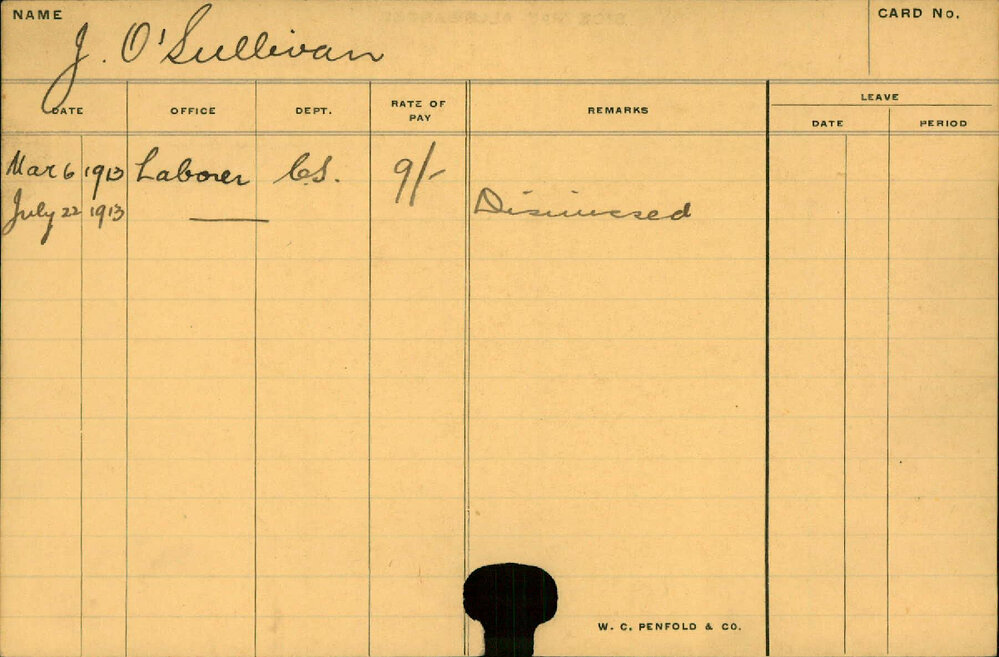 NAME J. O'Sullivan CARD No.
DATE OFFICE DEPT. RATE OF PAY REMARKS LEAVE
DATE PERIOD
Mar 6 1913 Laborer C.S. 9/-
July 22 1913 —— Dismissed
W. C. PENFOLD & CO.